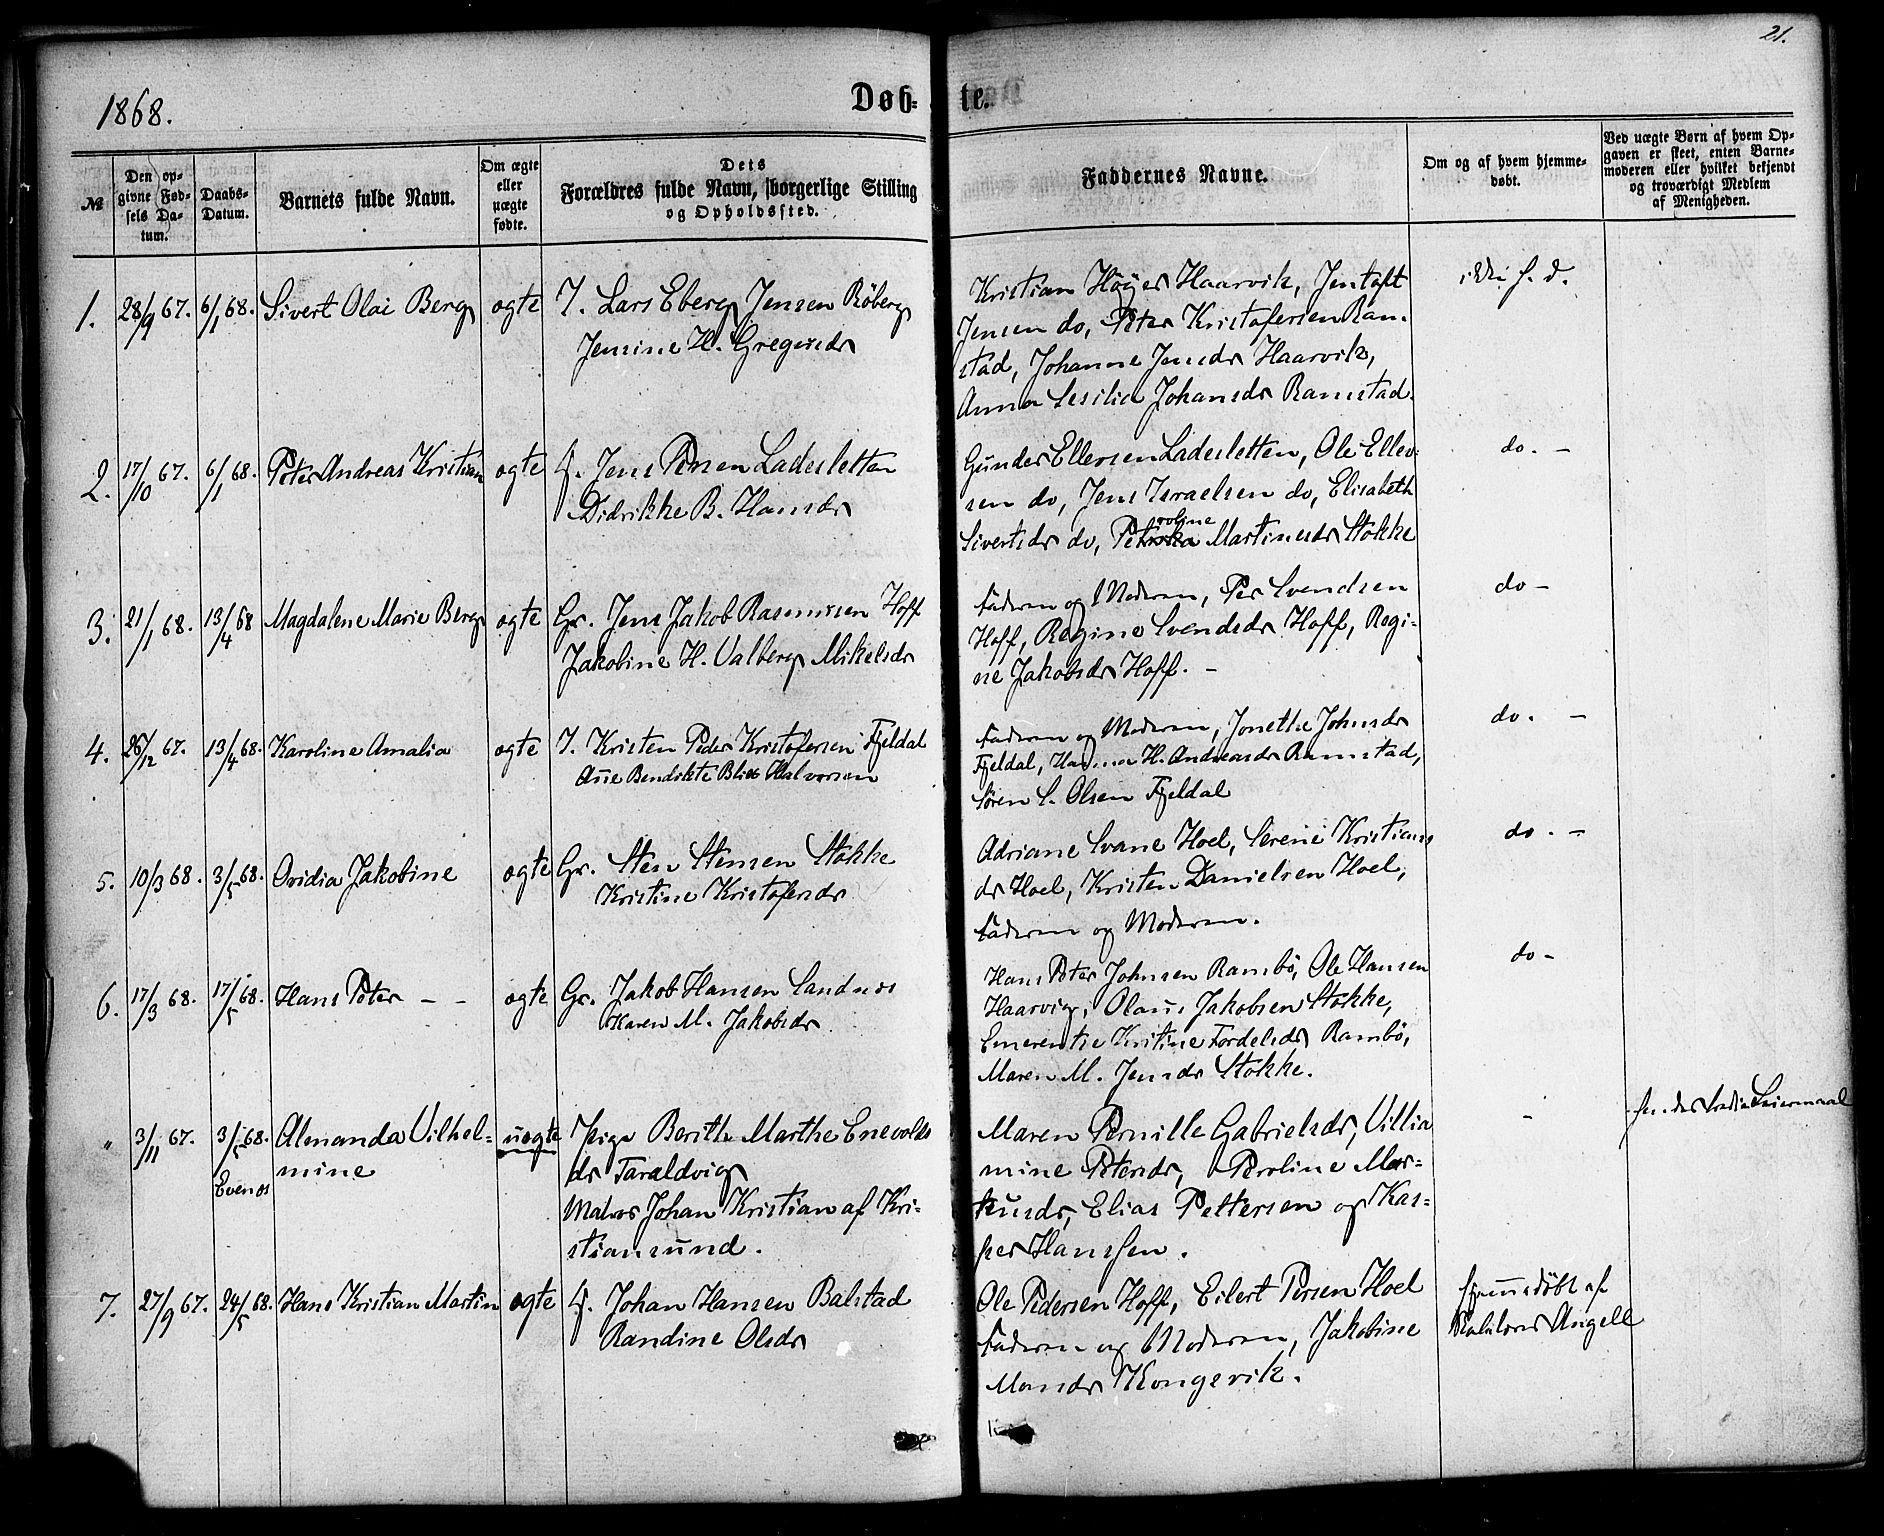 21.
1868.
Døb- te.
№
Den op-
givne Fød-
sels Da-
tum.
Daabs-
Datum.
Barnets fulde Navn.
Om ægte
eller
uægte
fødte.
Dets
Forældres fulde Navn, borgerlige Stilling
og Opholdssted.
Faddernes Navne.
Om og af hvem hjemme-
døbt.
Ved uægte Børn af hvem Op-
gaven er skeet, enten Barne-
moderen eller hvilket bekjendt
og troværdigt Medlem
af Menigheden.
1. 28/9 67. 6/1 68. Sivert Olai Berg ægte I. Lars Eberg Jensen Röberg
Jensine H. Gregersdr
Kristian Höyer Haarvik, Jentoft
Jensen do, Peter Kristofersen Ram-
stad, Johanne Jensdr Haarvik,
Anna Sesilia Johansdr Ramstad.
ikke h. d.
2. 17/10 67. 6/1 68. Peter Andreas Kristian ægte Jens Persen Ladesletten
Didrikke B. Hansdr
Gunder Ellevsen Ladesletten, Ole Ellev-
sen do, Jens Israelsen do, Elisabeth
Sivertsdr do, Petroline Martinusdr Stokke
do. -
3. 21/1 68. 13/4 68 Magdalene Marie Berg ægte Gr. Jens Jakob Rasmussen Hoff
Jakobine H. Valberg Mikelsdr
Faderen og Moderen, Per Svendsen
Hoff, Regine Svendsdr Hoff, Regi-
ne Jakobsdr Hoff. -
do -
4. 26/12 67. 13/4 68. Karoline Amalia ægte I. Kristen Peder Kristofersen Fjeldal
Ane Bendikte Blix Halvorsen
Faderen og Moderen, Jonethe Johnsdr
Fjeldal, Hanna H. Andreasdr Ramstad,
Sören S. Olsen Fjeldal
do. -
5. 10/3 68. 3/5 68. Ovidia Jakobine ægte Gr. Sten Stensen Stokke
Kristine Kristofersdr
Adriane Svane Hoel, Serene Kristians
dr Hoel, Kristen Danielsen Hoel,
Faderen og Moderen.
do. -
6. 17/3 68. 17/5 68. Hans Peter - - ægte Gr. Jakob Hansen Sandnes
Karen M. Jakobsdr
Hans Peter Johnsen Rambö, Ole Hansen
Haarvig, Olaus Jakobsen Stokke,
Emerentse Kristine Fordelsdr Rambö,
Maren M. Jensdr Stokke.
do -
" 3/11 67. 3/5 68. Almanda Vilhel-
mine
Evenes
uægte Pige Berith Marthe Enevolds
dr Taraldvig
Maler Johan Kristian af Kri-
stiansund.
Maren Pernille Gabrielsdr, Villia
mine Petersdr, Peroline Mar-
kusdr, Elias Pettersen og Kas-
per Hanssen.
-
Leiermaal
7. 27/9 67. 24/5 68. Hans Kristian Martin ægte Johan Hansen Balstad
Randine Olsdr
Ole Pedersen Hoff, Eilert Persen Hoel
Faderen og Moderen, Jakobine
Monsdr Kongsvik.
hjemmedöbt af
Angell